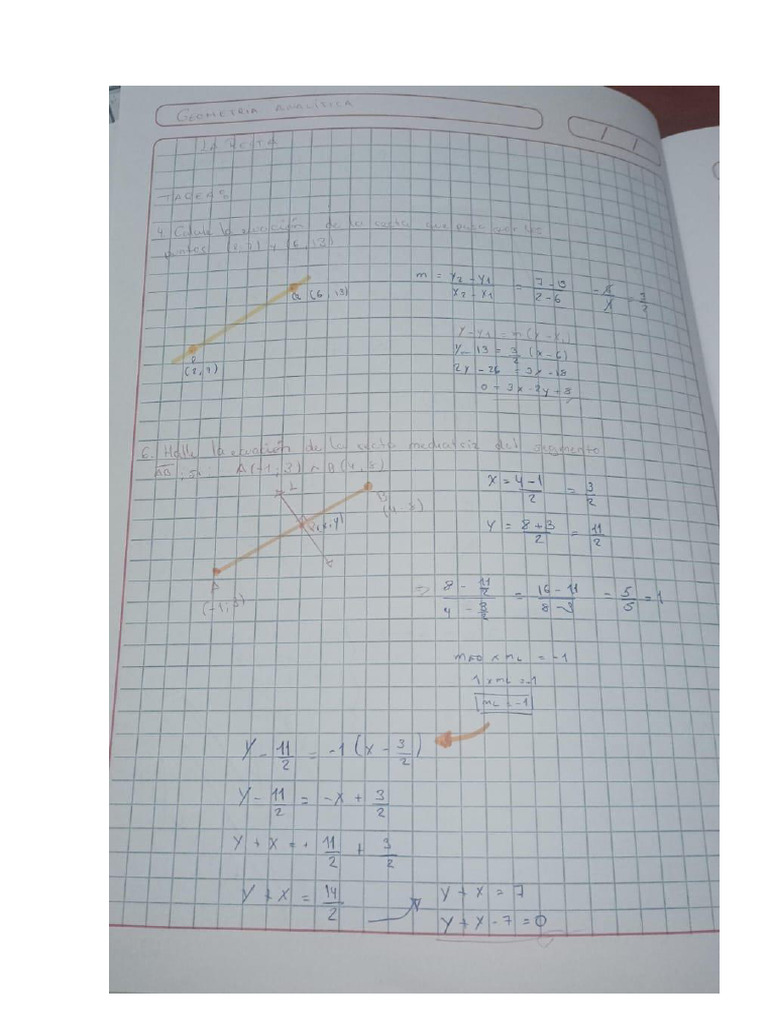 GEOMETRIA ANALITICA
LA RECTA
TAREA
4. Calcule la ecuación de la recta que pasa por los
puntos (2,7) y (6,13)
Q (6,13)
P
(2,7)
m = y₂ - y₁ / x₂ - x₁ = 7 - 13 / 2 - 6 = 3/2
y - y₁ = m(x - x₁)
y - 13 = 3/2 (x - 6)
2y - 26 = 3x - 18
0 = 3x - 2y + 8
6. Halle la ecuación de la recta mediatriz del segmento
AB, si: A(-1;3) B(4,8)
L
B
(x,y)
A
(-1;3)
x = 4-1/2 = 3/2
y = 8+3/2 = 11/2
⇒ 8 - 11/2 / 4 - 3/2 = 16-11 / 8-3 = 5/5 = 1
x mL = -1
1 x mL = -1
mL = -1
y - 11/2 = -1(x - 3/2)
y - 11/2 = -x + 3/2
y + x = + 11/2 + 3/2
y + x = 14/2
y + x = 7
y + x - 7 = 0